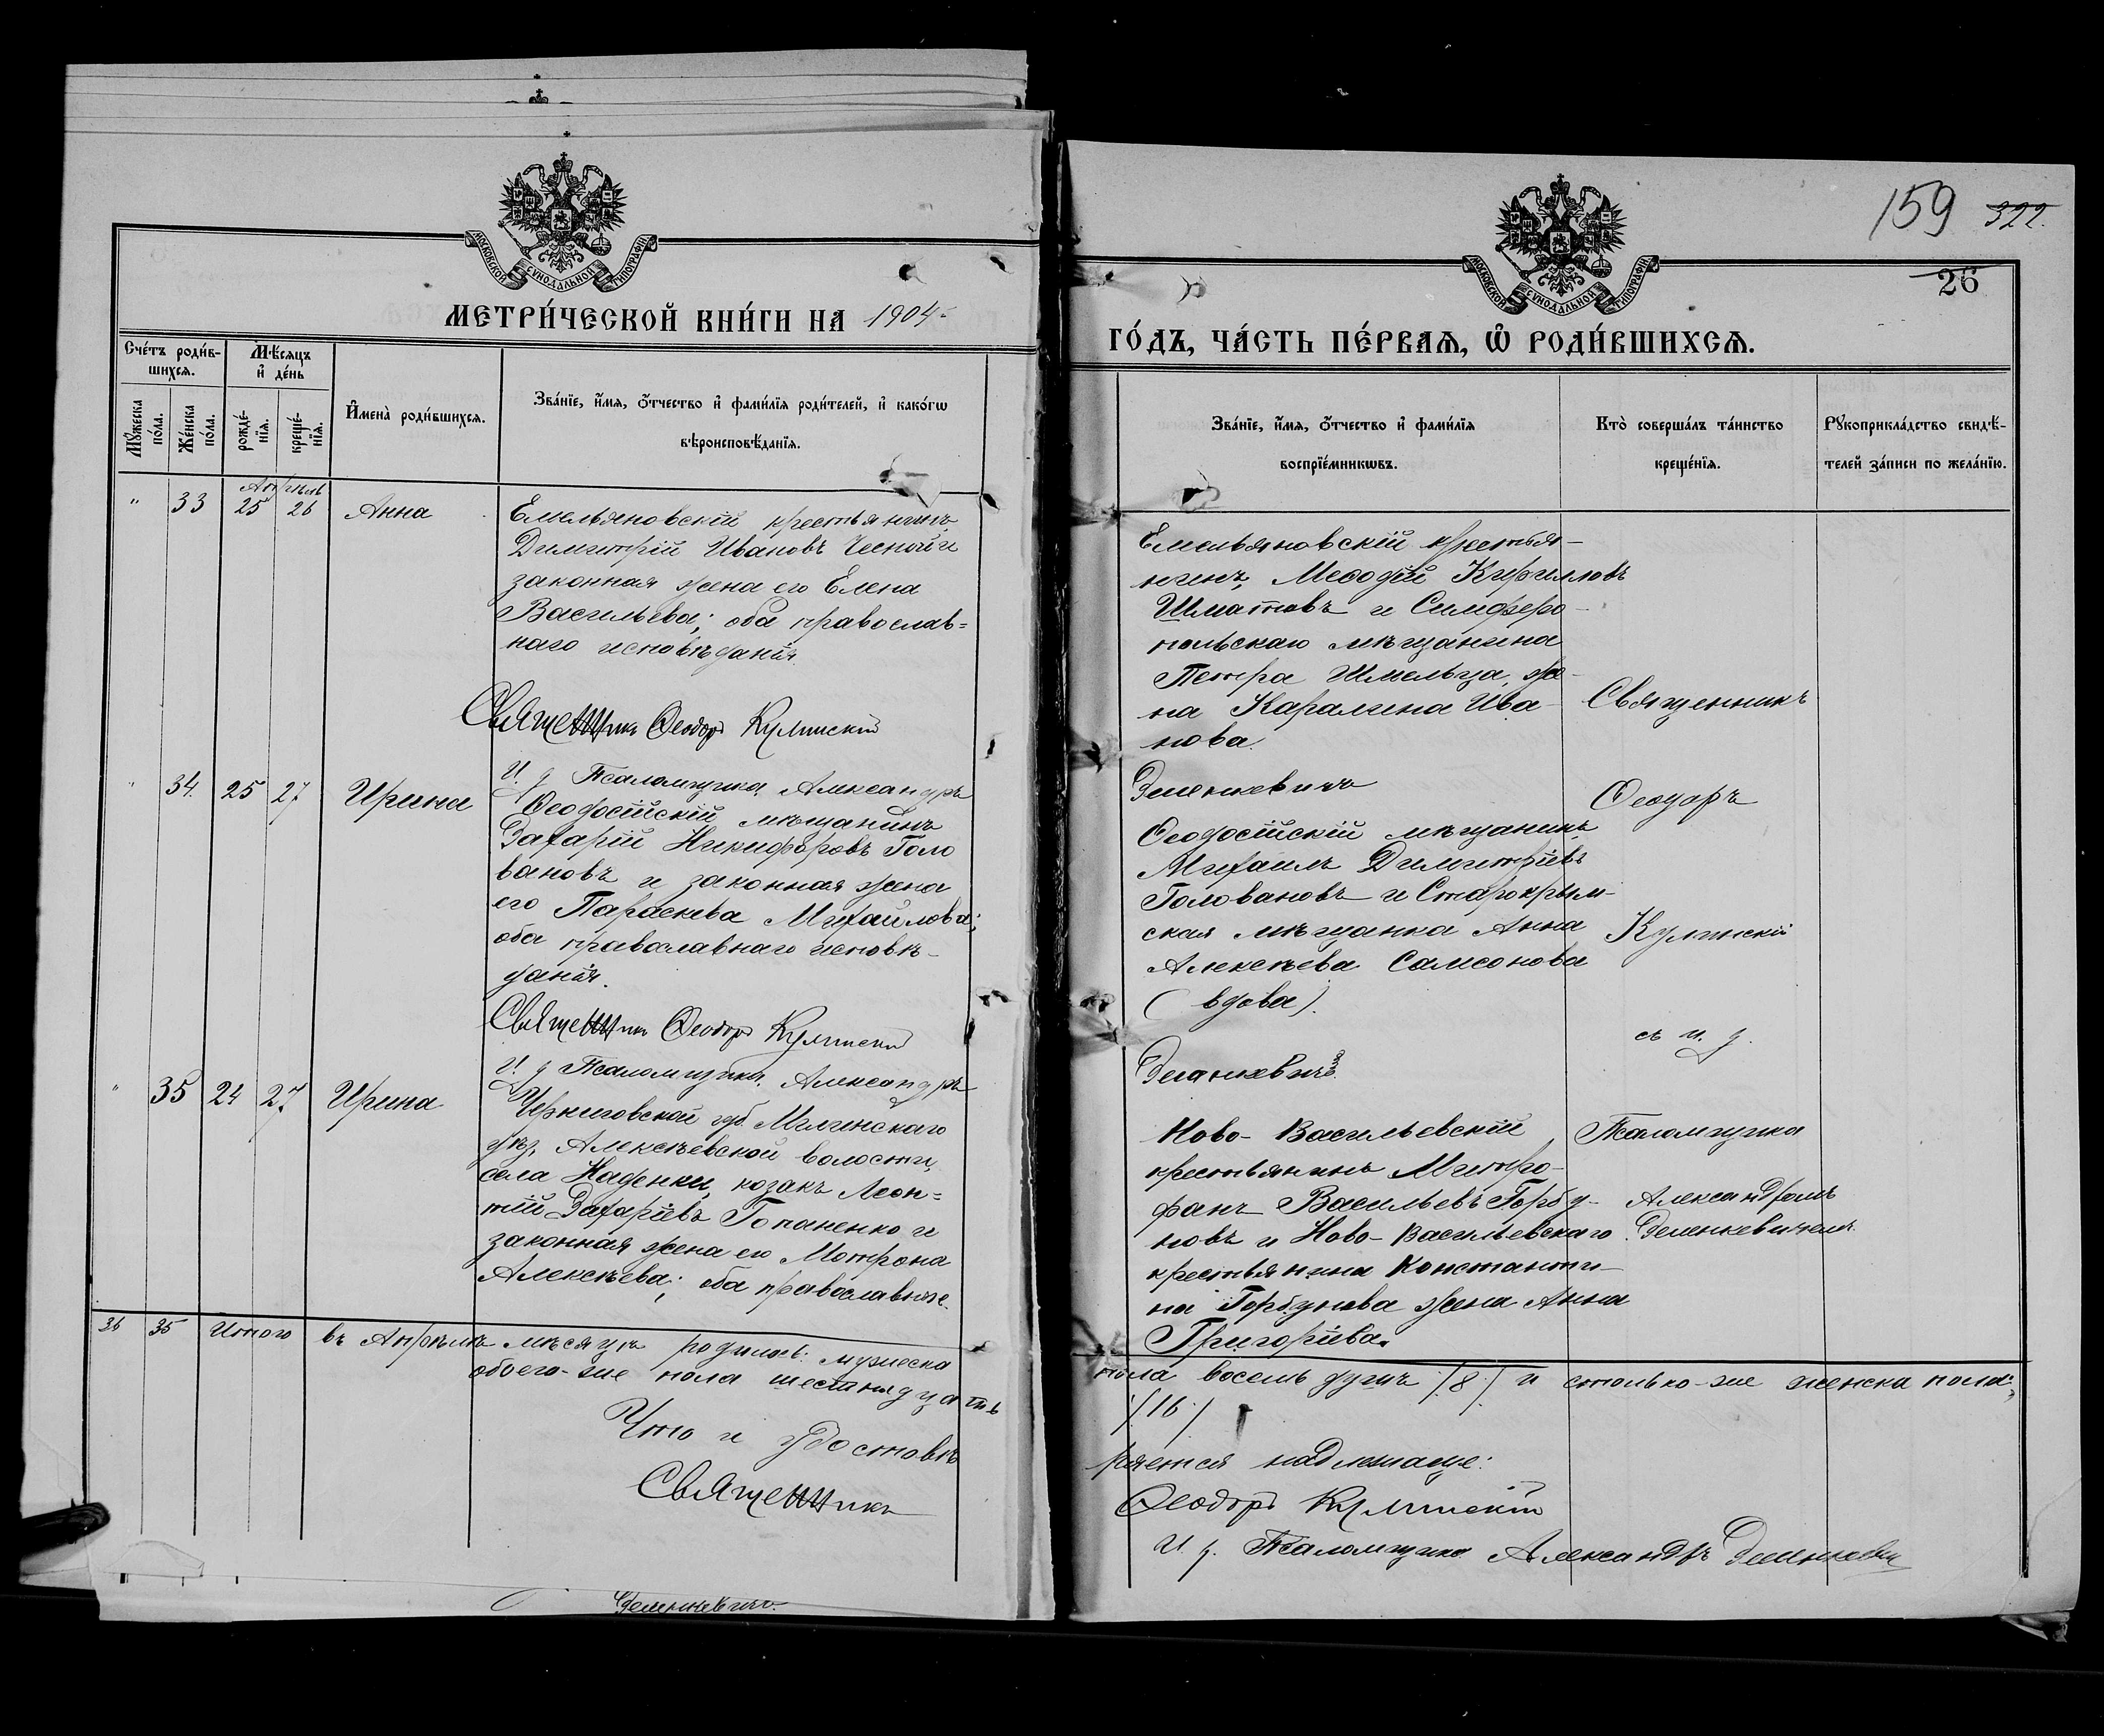 159 322.
26
МОСКОВСКОЙ СУНОДАЛЬНОЙ ТИПОГРАФІИ
МОСКОВСКОЙ СУНОДАЛЬНОЙ ТИПОГРАФІИ
МЕТРИ́ЧЕСКОЙ КНИ́ГИ НА 1904
ГО́ДЪ, ЧА́СТЬ ПЕ́РВАЯ, Ѡ҆ РОДИ́ВШИХСЯ.
Сче́тъ роди́в-
шихся.
Мꙋ́жеска по́ла.
Же́нска по́ла.
Мѣ́сяцъ
и҆ де́нь
рожде́-
нїя.
креще́-
нїя.
И҆мена̀ роди́вшихся.
Зва́нїе, и҆́мя, о҆́тчество и҆ фами́лїя роди́телей, и҆ како́гѡ
вѣроисповѣ́данїя.
Зва́нїе, и҆́мя, о҆́тчество и҆ фами́лїя
воспрїе́мникѡвъ.
Кто̀ соверша́лъ та́инство
креще́нїя.
Рꙋкоприкла́дство свидѣ́-
телей за́писи по жела́нїю.
Апрѣль
" 33 25 26 Анна
Емельяновскій крестьянинъ
Димитрій Ивановъ Чесной и
законная жена его Елена
Васильева; оба православ=
наго исповѣданія.
Священникъ Ѳеодоръ Кулинскій
И. д Псаломщика Александръ
Емельяновскій крестья-
нинъ, Меѳодій Кирилловъ
Шматовъ и Симферо-
польскаго мѣщанина
Петра Шмельца, же-
на Каралина Ива-
нова.
Зеленкевичъ
" 34. 25 27 Ирина
Ѳеодосійскій мѣщанинъ
Захарій Никифоровъ Голо
вановъ и законная жена
его Параскева Михайлова;
оба православнаго исповѣ-
данія.
Священникъ Ѳеодоръ Кулинскій
И. д Псаломщика, Александръ
Ѳеодосійскій мѣщанинъ
Михаилъ Димитріевъ
Головановъ и Старокрым-
ская мѣщанка Анна
Алексѣева Самсонова
(вдова).
Зеленкевичъ
" 35 24 27 Ирина
Черниговской губ. Мглинскаго
уѣз. Алексѣевской волости,
села козакъ Леон=
тій Захаріевъ Гопаненко и
законная жена его Мотрона
Алексѣева; оба православные.
Ново-Васильевскій
крестьянинъ Митро-
фанъ Васильевъ Горбу-
новъ и Ново-Васильевскаго
крестьянина Константи-
на Горбунова жена Анна
Григоріева.
Священникъ
Ѳеодоръ
Кулинскій
съ и. д.
Псаломщика
Александромъ
Зеленкевичемъ.
36 35 Итого въ Апрѣлѣ мѣсяцѣ родилось: мужеска
пола восемь душъ /8/ и столько-же женска пола;
обоего-же пола шестнадцать
/16/
Что и удостовѣ
ряется надлежаще:
Священникъ
Ѳеодоръ Кулинскій
И. д. Псаломщика Александръ Зеленкевич
Зеленкевичъ.